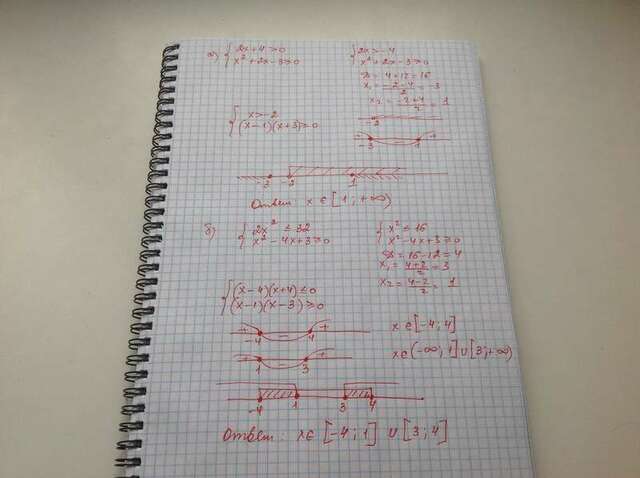 а) { 2x+4>0
x²+2x-3≥0
{ 2x>-4
x²+2x-3≥0
D = 4+12=16
x₁ = (-2-4)/2 = -3
x₂ = (-2+4)/2 = 1
{ x>-2
(x-1)(x+3)≥0
-2
+ - +
-3 1
-3 -2 1
Ответ: x ∈ [1; +∞)
б) { 2x² ≤ 32
x²-4x+3≥0
{ x² ≤ 16
x²-4x+3≥0
D = 16-12=4
x₁ = (4+2)/2 = 3
x₂ = (4-2)/2 = 1
{ (x-4)(x+4)≤0
(x-1)(x-3)≥0
+ - +
-4 4
x ∈ [-4; 4]
+ - +
1 3
x ∈ (-∞; 1] ∪ [3; +∞)
-4 1 3 4
Ответ: x ∈ [-4; 1] ∪ [3; 4]